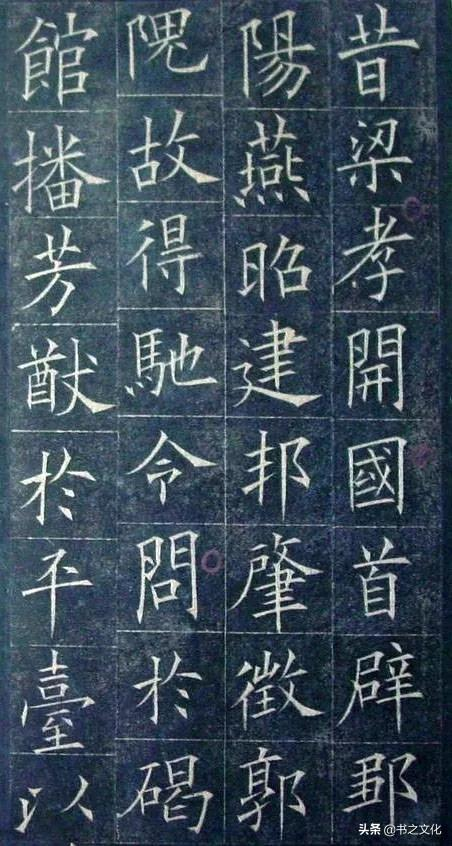 昔梁孝開國首辟鄒
陽燕昭建邦肇徵郭
隗故得馳令問於碣
館播芳猷於平臺以
头条@书之文化